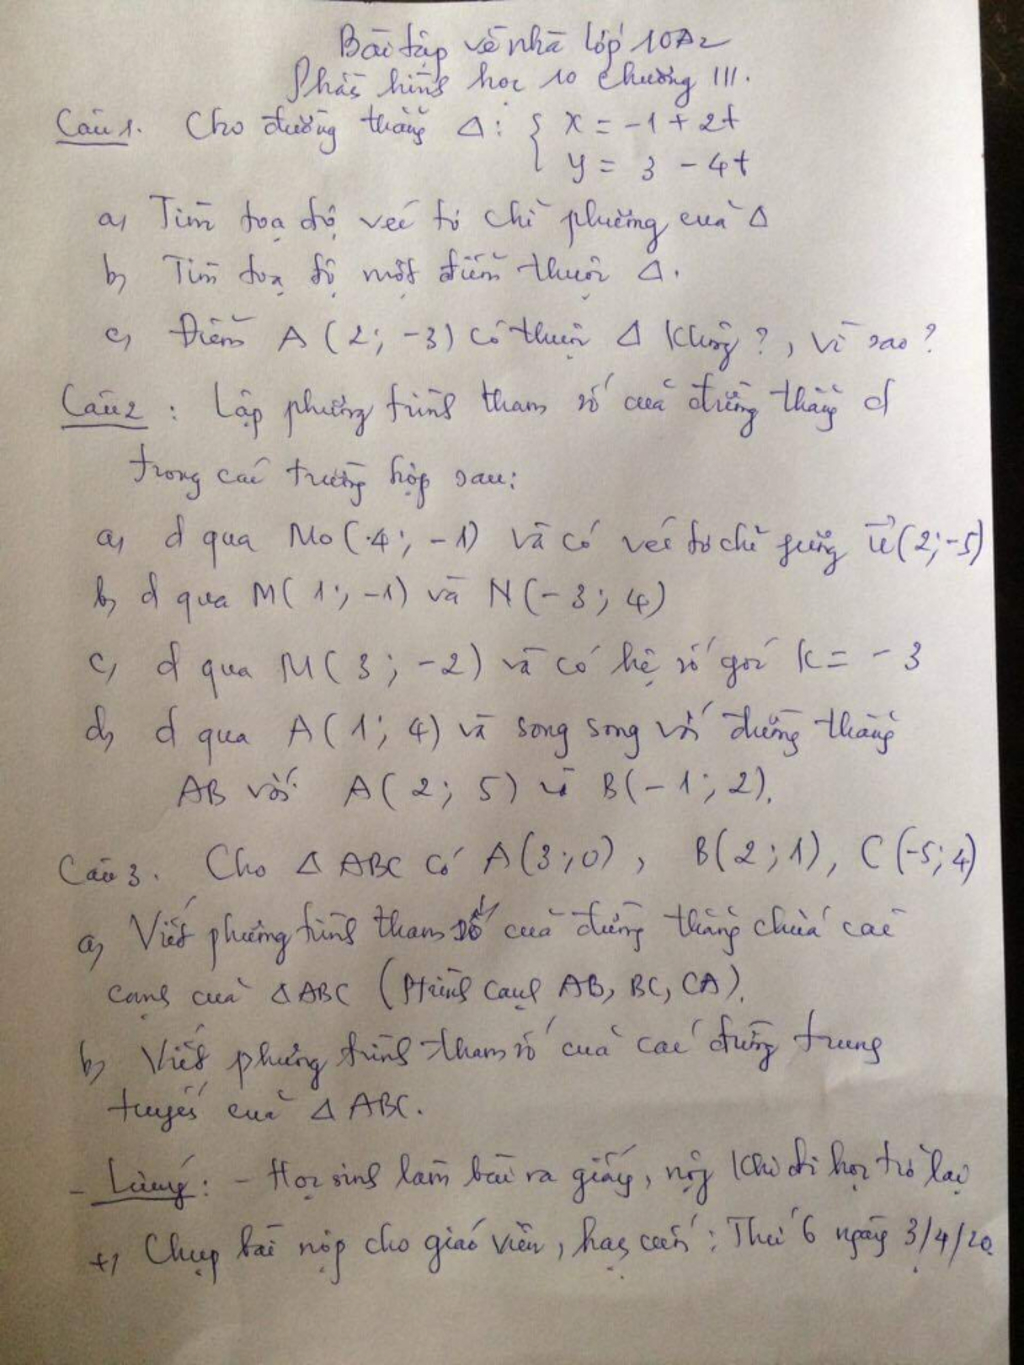 Bài tập về nhà lớp 10A2
Phần hình học 10 chương III.
Câu 1. Cho đường thẳng Δ: { x = -1 + 2t
y = 3 - 4t
a, Tìm toạ độ véc tơ chỉ phương của Δ
b, Tìm toạ độ một điểm thuộc Δ.
c, Điểm A (2; -3) có thuộc Δ không?, vì sao?
Câu 2 : Lập phương trình tham số của đường thẳng d
trong các trường hợp sau:
a, d qua M0 (4; -1) và có véc tơ chỉ phương u⃗(2;-5)
b, d qua M(1; -1) và N(-3; 4)
c, d qua M(3; -2) và có hệ số góc k = -3
d, d qua A(1; 4) và song song với đường thẳng
AB với A(2; 5) và B(-1; 2).
Câu 3. Cho Δ ABC có A(3;0), B(2;1), C(-5;4)
a, Viết phương trình tham số của đường thẳng chứa các
cạnh của ΔABC (Ptrình cạnh AB, BC, CA).
b, Viết phương trình tham số của các đường trung
tuyến của ΔABC.
- Lưu ý: - Học sinh làm bài ra giấy, nộp khi đi học trở lại
+, Chụp bài nộp cho giáo viên, hạn cuối: Thứ 6 ngày 3/4/20